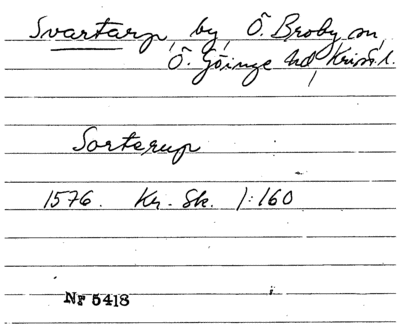 Svartarp, by, Ö. Broby sn,
Ö. Göinge hd, Krist. l.
Sorterup
1576. Kr. Sk. 1:160
Nr 5418